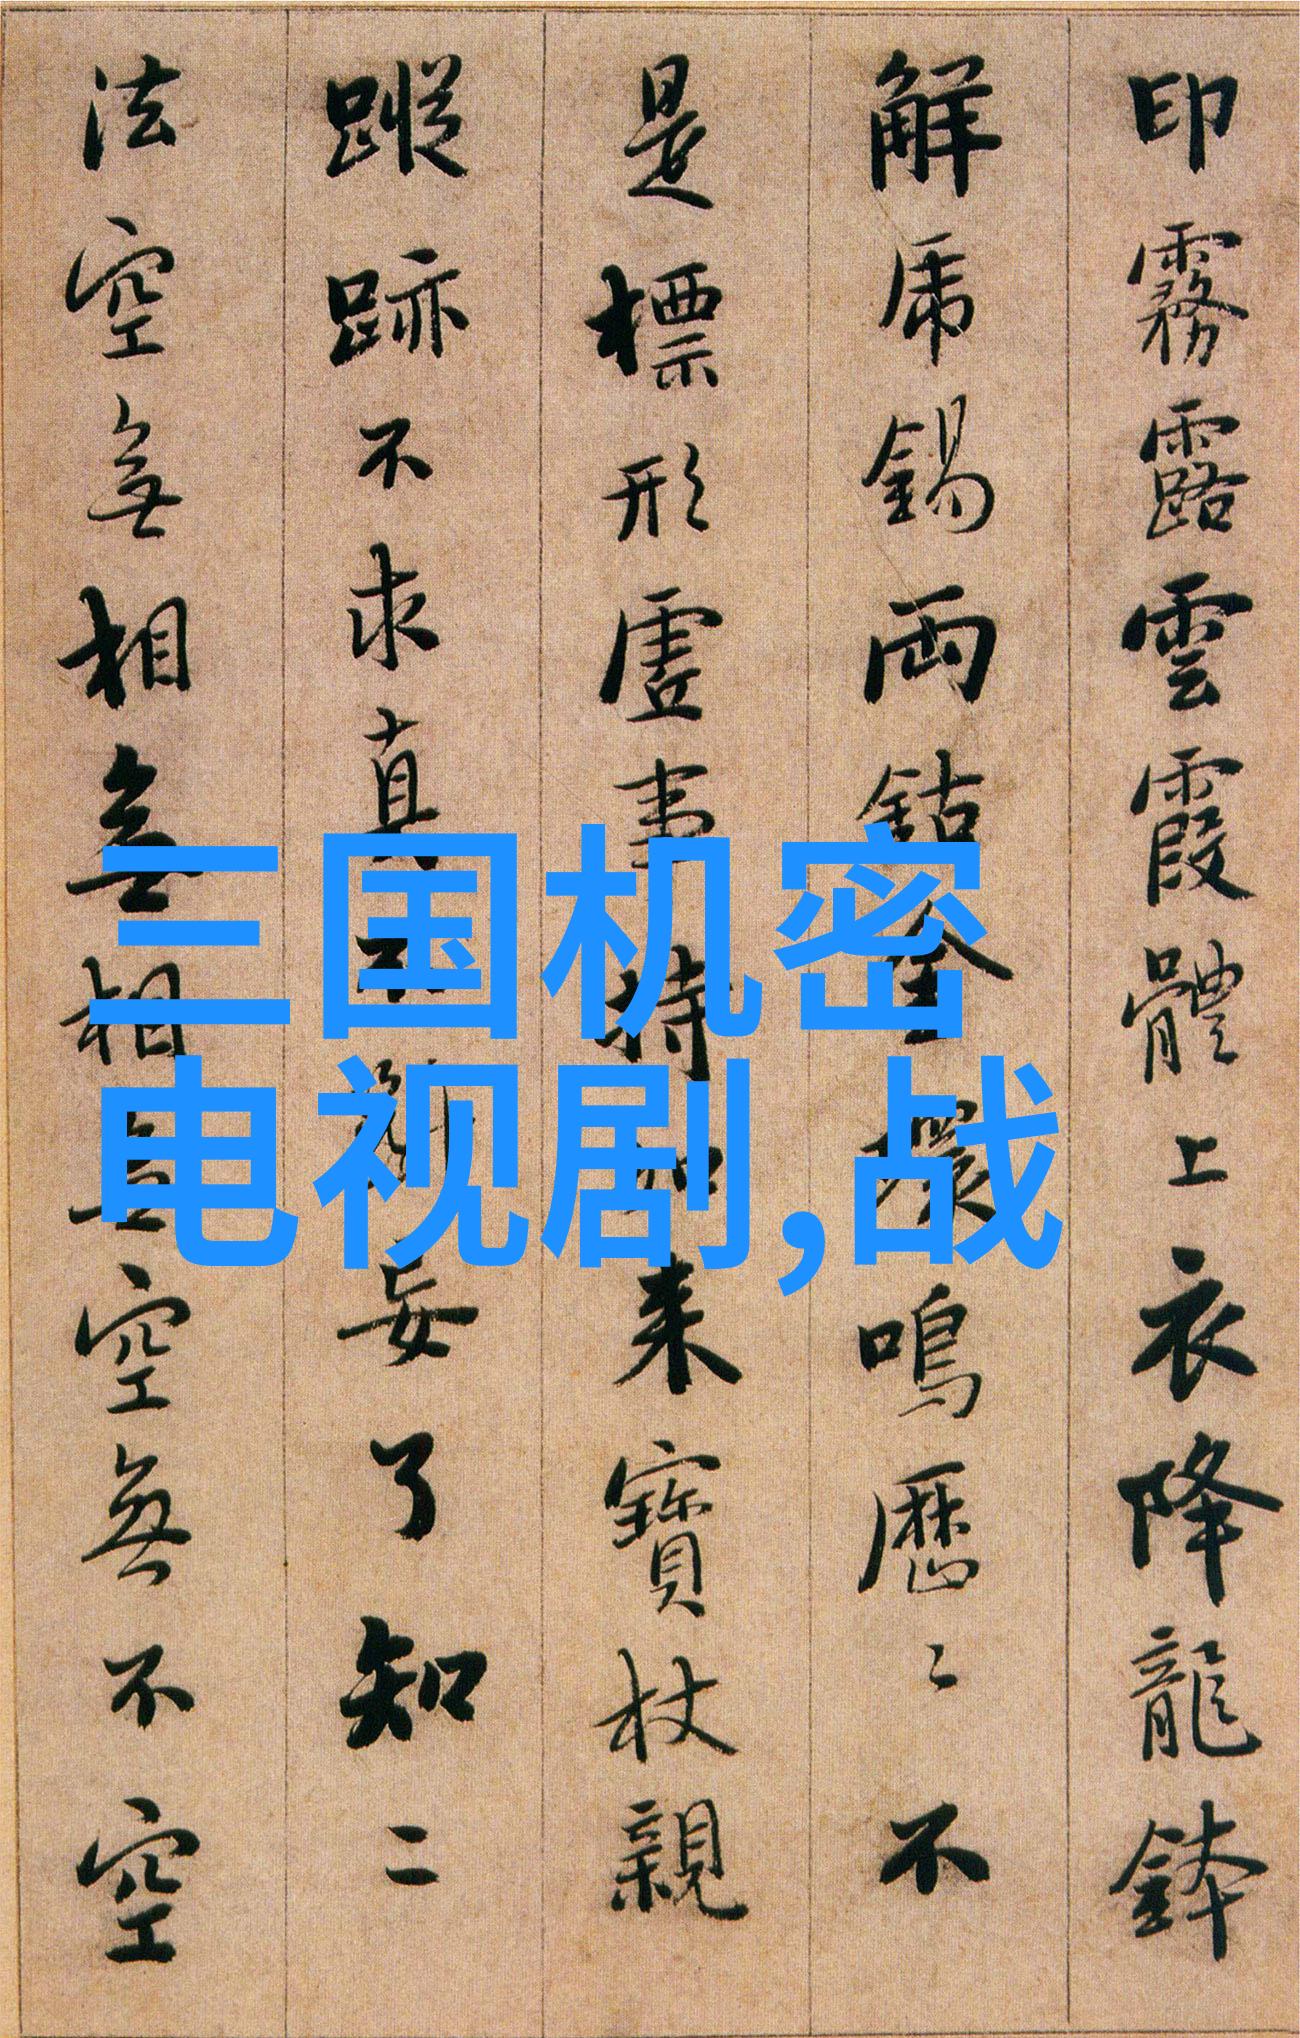 印霧露雲霞體上衣降龍鉢
解虎錫兩鈷金環鳴歷〻不
是標形虛事持如来寶杖親
蹤跡不求真不斷妄了知二
法空無相無相無空無不空
三国机密
电视剧,战